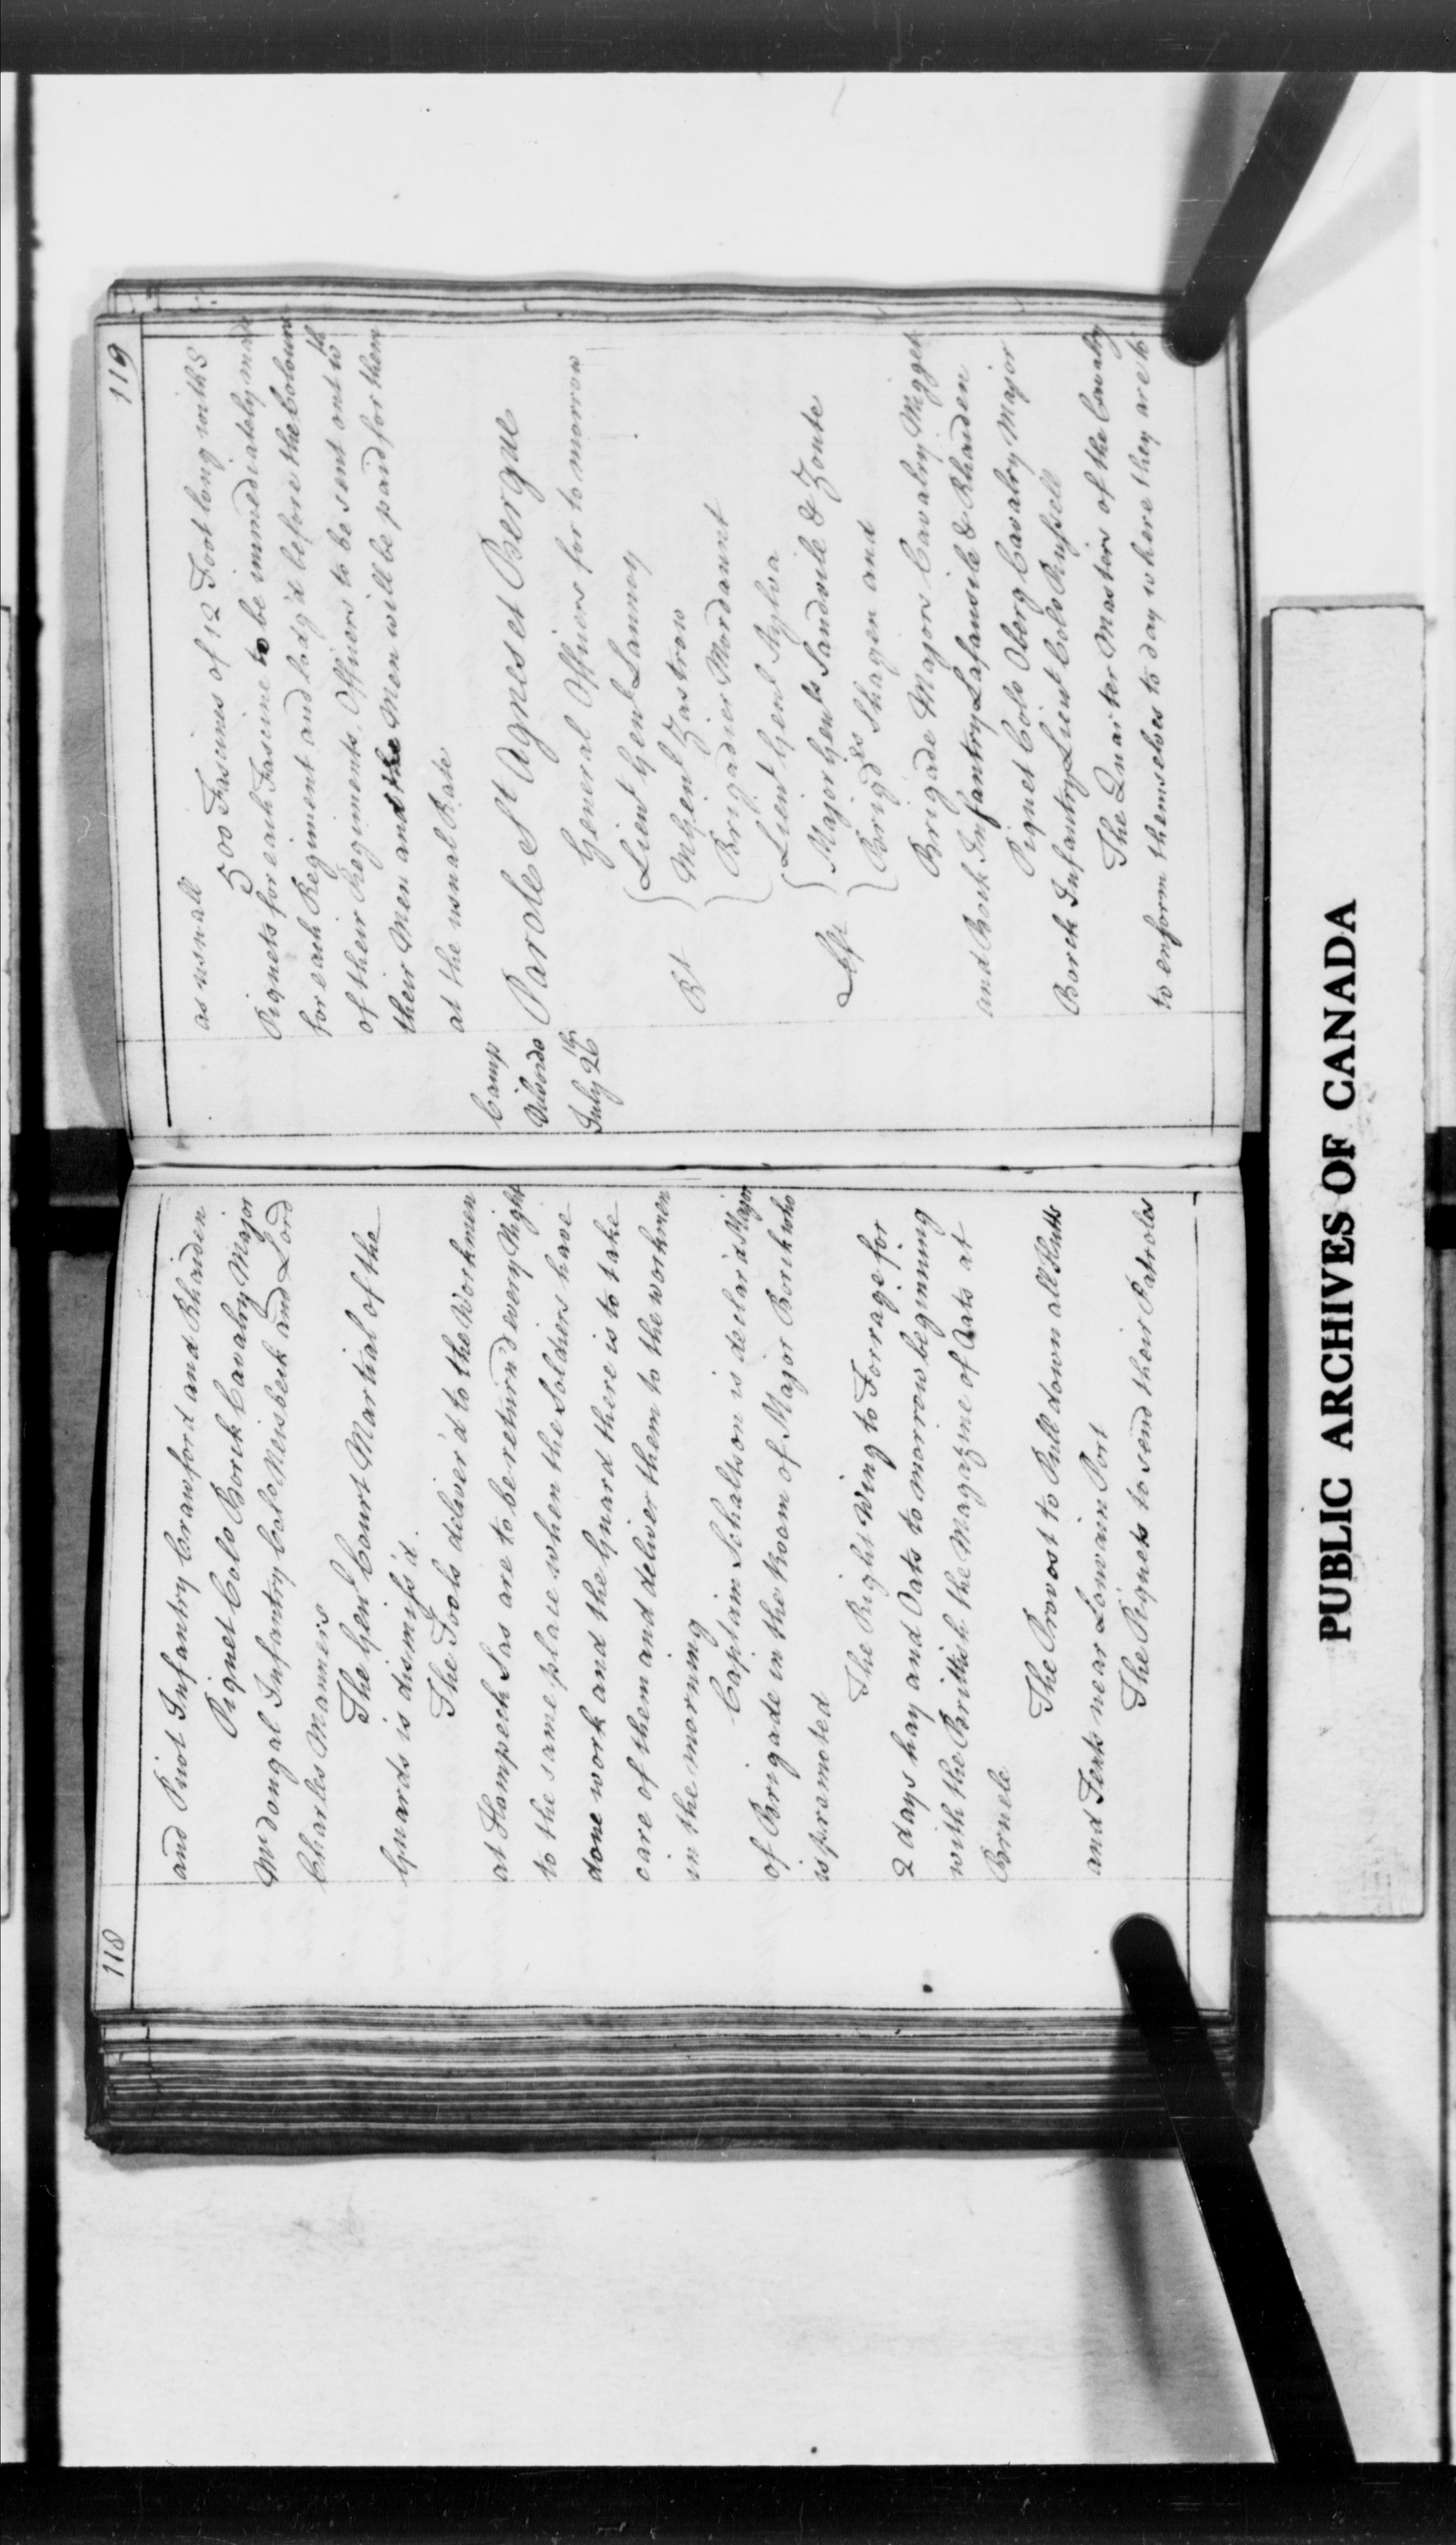 118
and Pruot Infantry Crawford and Rhaiden
Piquet Colo Borck Cavalry Major
McDongal Infantry Colo Meisbeck and Lord
Charles Manners
The Genl Court Martial of the
Guards is dismiss'd.
The Tools deliver'd to the Workmen
at Hampeck Sas are to be return'd every Night
to the same place when the Soldiers have
done work and the Guard there is to take
care of them and deliver them to the workmen
in the morning
Captain Schaltson is declar'd Major
of Brigade in the Room of Major Borck who
is promoted
The Right Wing to Forrage for
2 days hay and Oats to morrow beginning
with the Brittish the Magazine of Oats at
Bruele
The Provost to Pull down all Hutts
and Tents near Lowvain Port
The Piquets to send their Patroles
119
as usuall
500 Fascines of 12 Foot long with 8
Piquets for each Fascine to be immediately made
for each Regiment and lodg'd before the Colours
of their Regiments, Officers to be sent out wth
their Men and the Men will be paid for them
at the usual Rate
Camp
Vilvordo
July 26th
Parole St Agnes et Bergue
General Officers for to morrow
Lieut Genl Launoy
Rt MGenl Zastrow
Brigadier Mordaunt
Lieut Genl Sylva
Left Major Genls Sandvile & Zoute
Brigds Shagen and
Brigade Majors Cavalry Megget
and Bock Infantry Lafausile & Rhaiden
Piquet Colo Oberg Cavalry Major
Borck Infantry Lieut Colo Russell
The Quarter Masters of the Cavalry
to enform themselves to day where they are to
PUBLIC ARCHIVES OF CANADA